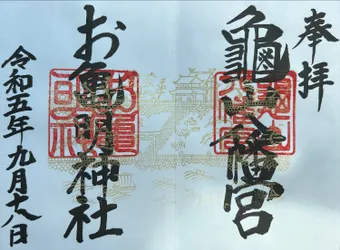 奉拝
龜山八幡宮
お亀明神社
令和五年九月十八日